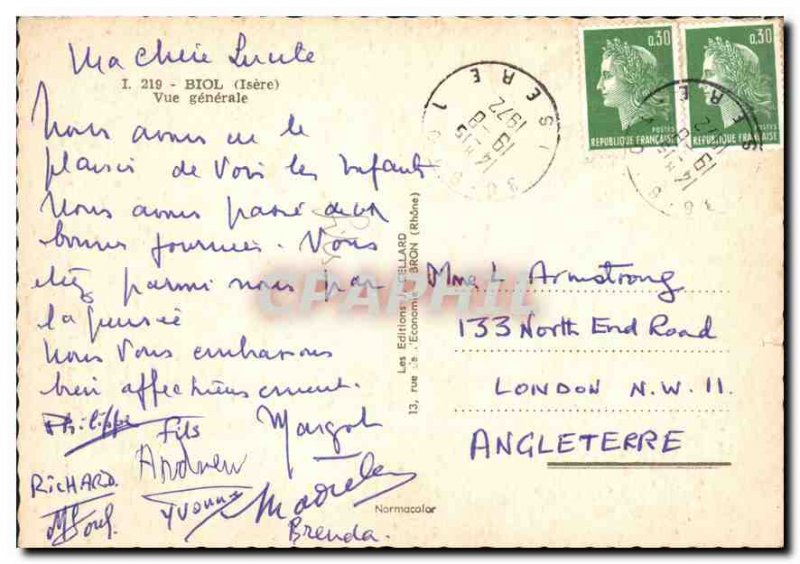 Ma chère Lucile
I. 219 - BIOL (Isère)
Vue générale
Nous avons eu le
plaisir de voir les enfants
Nous avons passé deux
bonnes journées. Vous
étiez parmi nous par
la pensée
Nous vous embrassons
bien affectueusement.
Philippe Fils Margot
RICHARD. Andrew
Yvonne
Brenda.
Les Editions J. CELLARD
13, rue de l'Economie BRON (Rhône)
Normacolor
CPARHIL
ISERE
14H15
19-8
1972
0,30
POSTES
REPUBLIQUE FRANÇAISE
0,30
POSTES
REPUBLIQUE FRANÇAISE
Mme L Armstrong
133 North End Road
LONDON N.W. 11.
ANGLETERRE